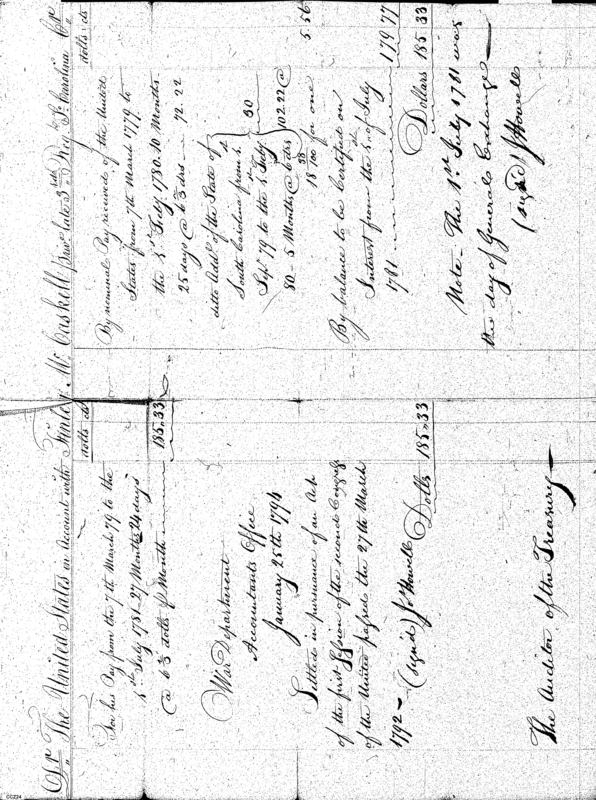 Dr. The United States in Account with Finley Mc Caskell Priv.r late 3rd Reg.t So. Carolina Cr.
dolls cts
For his Pay from the 7th March 79 to the
5th July 1781 27 Months 24 days
@ 6 2/3 dolls p Month 185.33
War Department
Accountants Office
January 25th 1794
Settled in pursuance of an Act
of the first Session of the second Congress
of the United passed the 27th March
1792 - (signed) J. Howell Dolls 185.33
The Auditor of the Treasury
dolls cts
By nominal Pay received of the United
States from 7th March 1779 to
the 5th July 1780. 10 Months
25 days @ 6 2/3 drs 72.22
ditto Add.l of the State of
South Carolina from 5th
Sept. 79 to the 5th July 30
80 5 Months @ 6 drs 102.22 @
18 38/100 for one 5.56
By balance to be Certified on
Interest from the 5th of July
1781 179 77
Dollars 185 33
Note - The 1st July 1781 was
the day of General Exchange
(signed) J. Howell
CC224